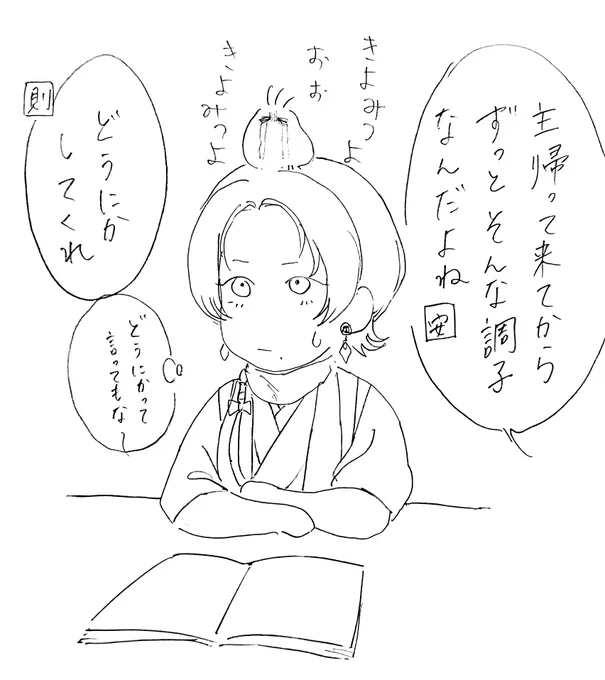 主帰って来てから
ずっとそんな調子
なんだよね
安
きよみつよ
おお
きよみつよ
則
どうにか
してくれ
どうにかって
言ってもな〜